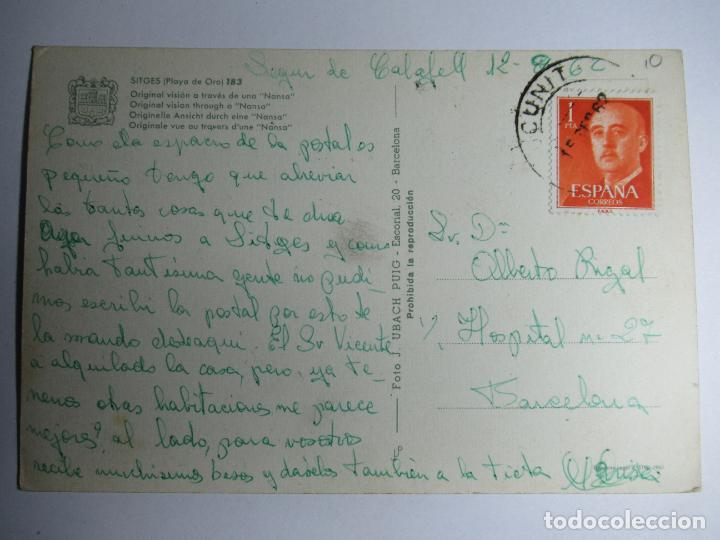 Segur de Calafell 12-8-62
10
SITGES (Playa de Oro) 183
Original visión a través de una "Nansa"
Original vision through a "Nansa"
Originelle Ansicht durch eine "Nansa"
Originale vue au travers d'une "Nansa"
Como ela espacio de la postal es
pequeño tengo que abreviar
las tantas cosas que te diria
Ayer fuimos a Sitges y como
habia tantisima gente no pudi
mos escribi la postal por esto te
la mando desdeaqui. El Sr Vicente
a alquilado la casa, pero ya te-
nemos otras habitaciones me parece
mejores al lado, para vosotros
recibe muchisimos besos y daselos también a la tieta
Foto J. UBACH PUIG - Escorial, 20 - Barcelona
Prohibida la reproducción
CUNIT
1
PTA
ESPAÑA
CORREOS
F.N.M.T.
Sr. Dn
Alberto Rigal
Hospital nº 27
Barcelona
todocoleccion
todocoleccion.net